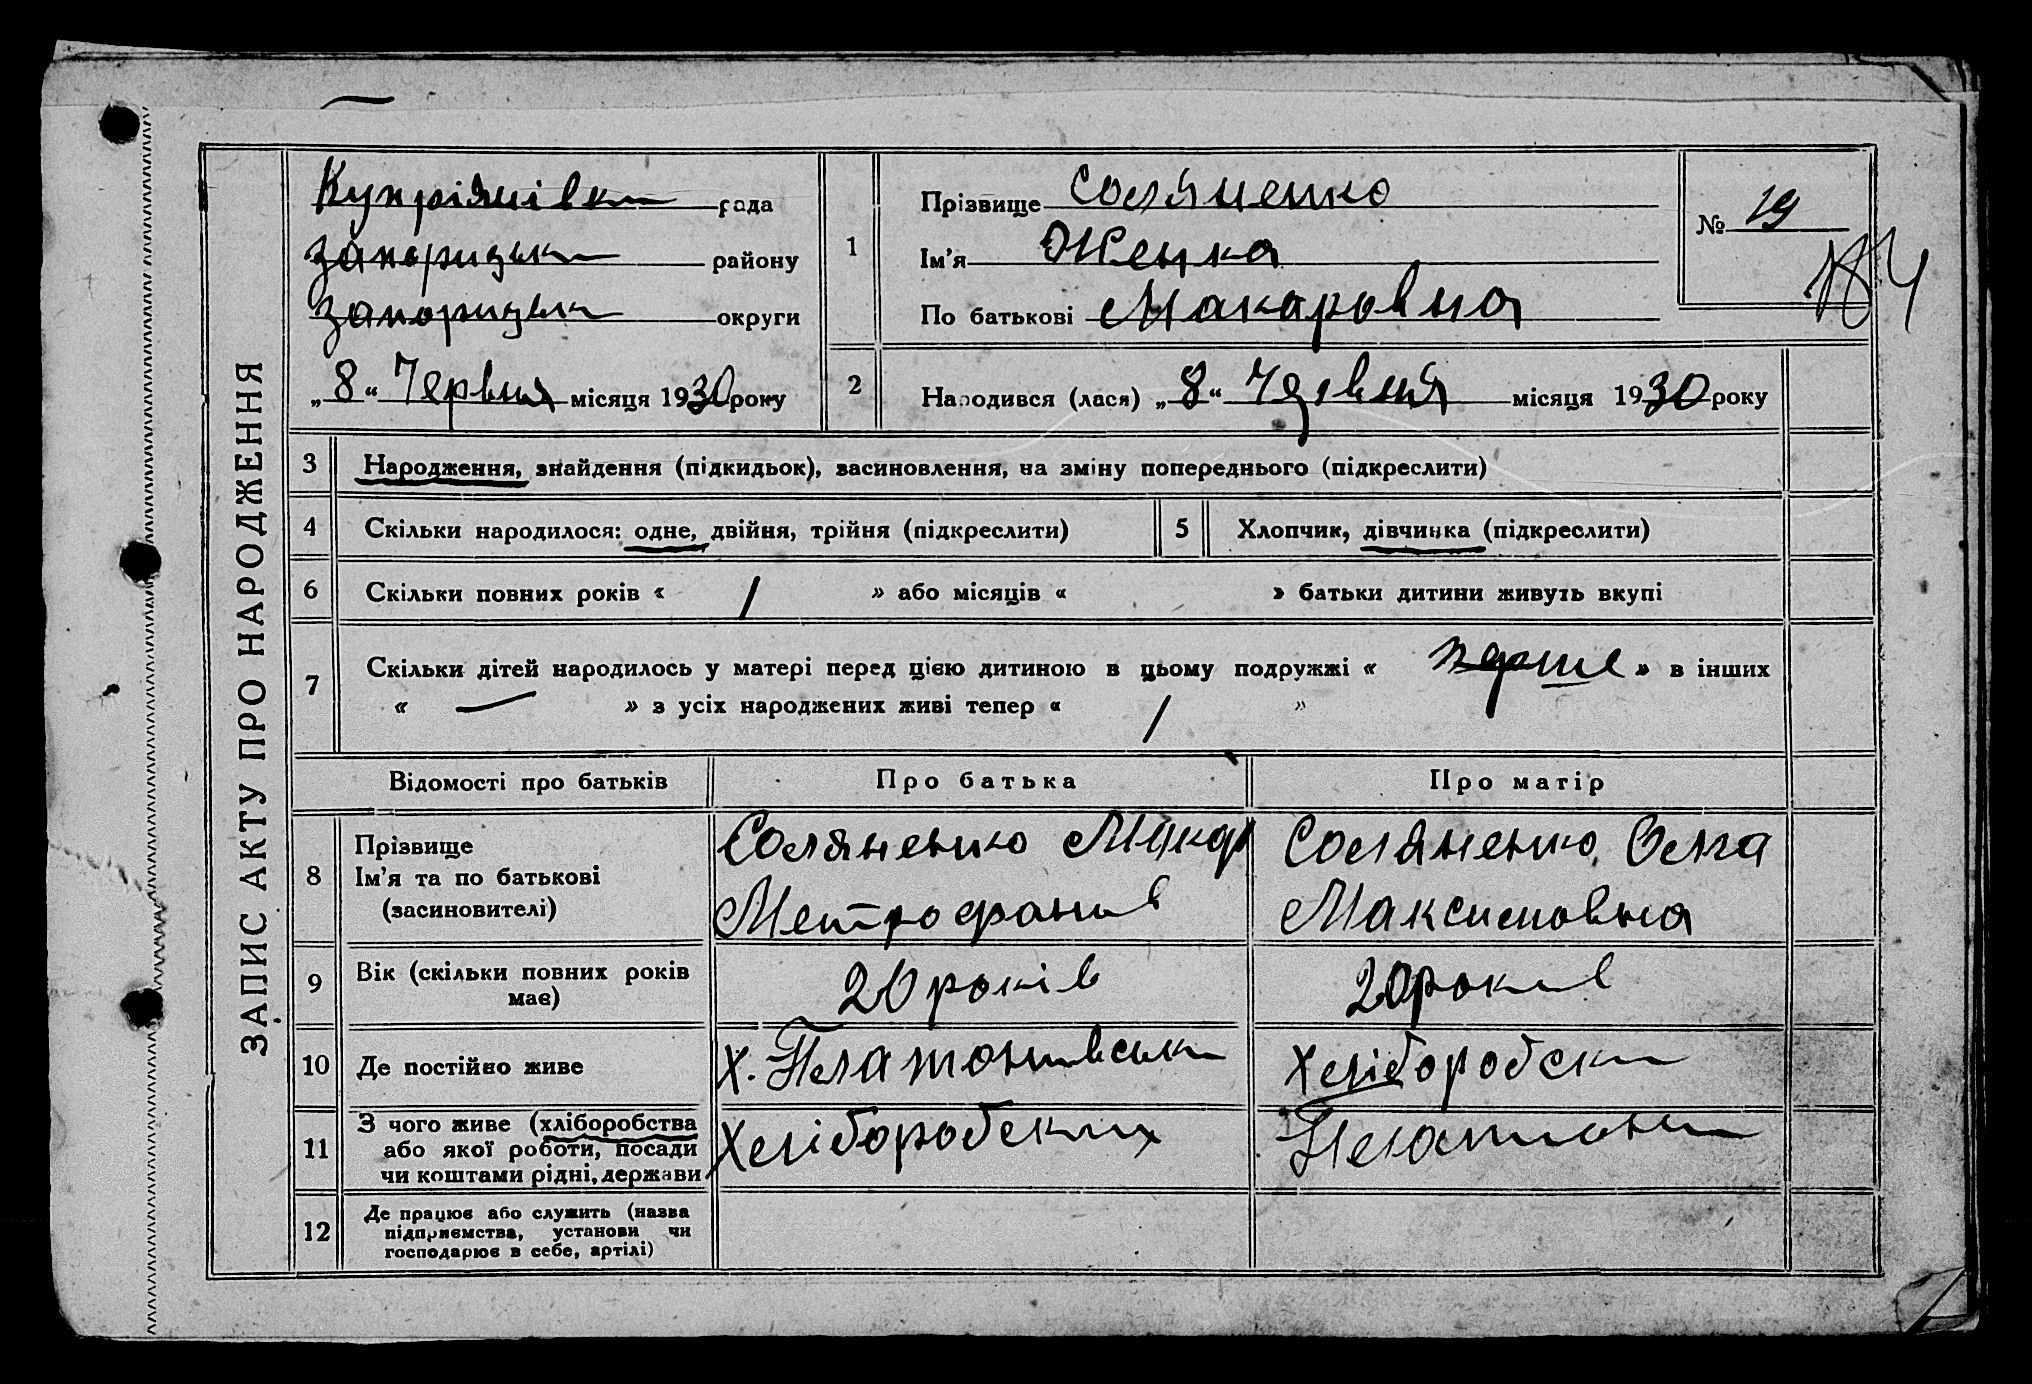 ЗАПИС АКТУ ПРО НАРОДЖЕННЯ
Купріянівка рада
Запоризьк району
Запоризьк округи
„8“ Червня місяця 1930 року
1
Прізвище Соляненко
Ім'я Женка
По батькові Макаровна
№ 19
2 Народився (лася) „8“ Червня місяця 1930 року
3 Народження, знайдення (підкидьок), засиновлення, на зміну попереднього (підкреслити)
4 Скільки народилося: одне, двійня, трійня (підкреслити) 5 Хлопчик, дівчинка (підкреслити)
6 Скільки повних років « 1 » або місяців « » батьки дитини живуть вкупі
7 Скільки дітей народилось у матері перед цією дитиною в цьому подружжі « перше » в інших
« — » з усіх народжених живі тепер « 1 »
Відомості про батьків Про батька Про матір
8 Прізвище
Ім'я та по батькові
(засиновителі)
Соляненко Макар
Метрофанів
Соляненко Олга
Максимовна
9 Вік (скільки повних років
має)
20 років
20 років
10 Де постійно живе
х. Платонівськ
Хліборобськ
11 З чого живе (хліборобства
або якої роботи, посади
чи коштами рідні, держави
Хліборобских
12 Де працює або служить (назва
підприємства, установи чи
господарює в себе, артілі)